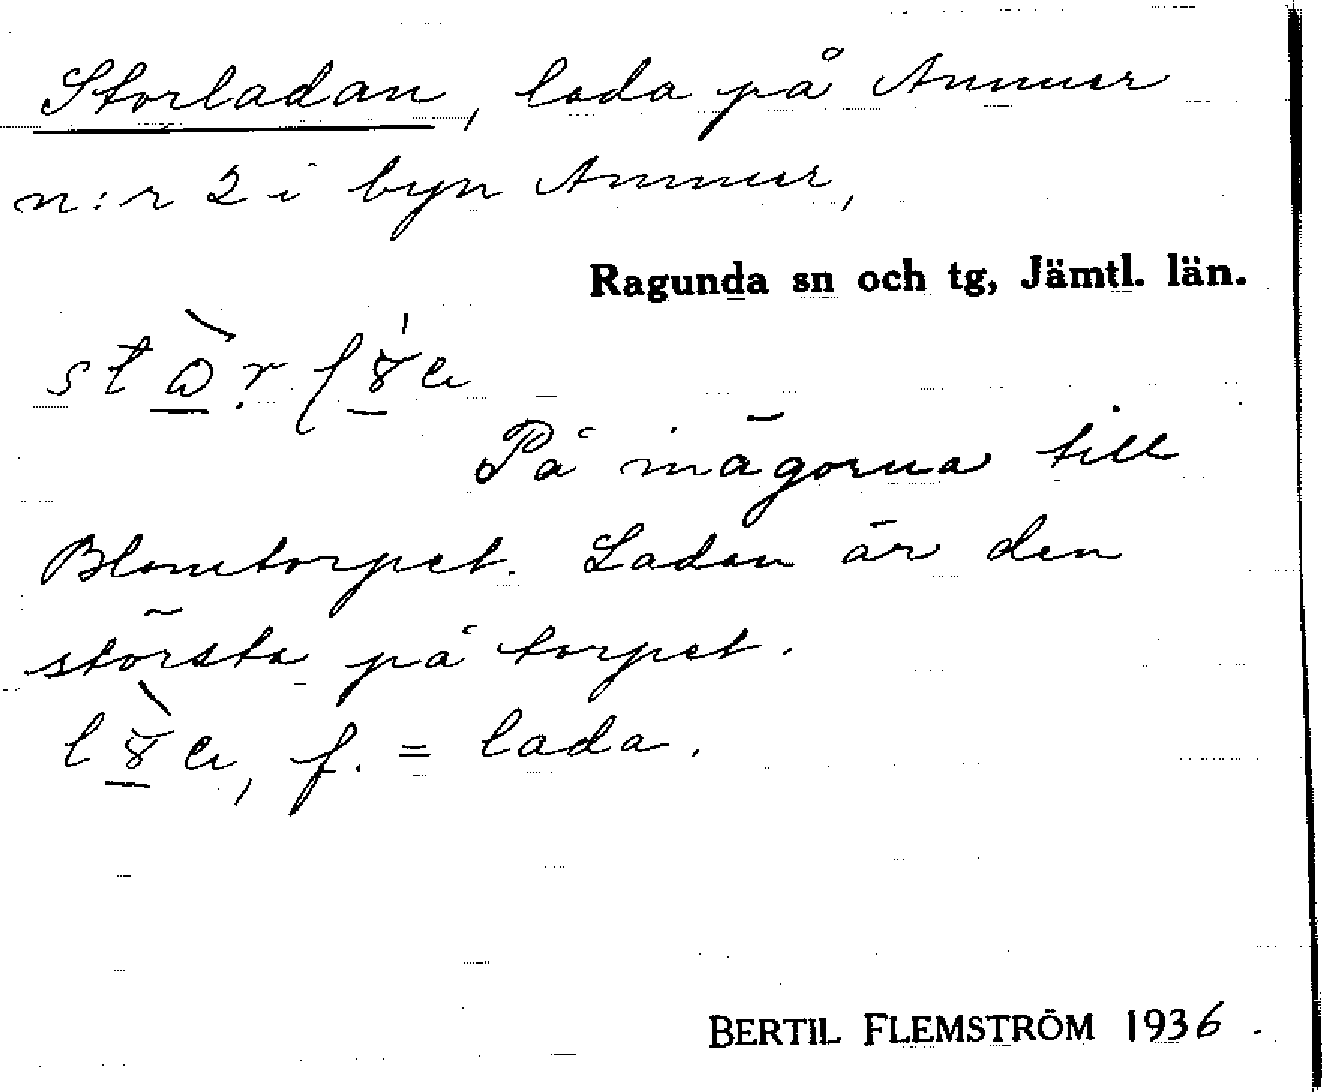 Storladan, lada på Ammer
n:r 2 i byn Ammer,
Ragunda sn och tg, Jämtl. län.
På inägorna till
Blomtorpet. Ladan är den
största på torpet.
f. = lada.
BERTIL FLEMSTRÖM 1936.